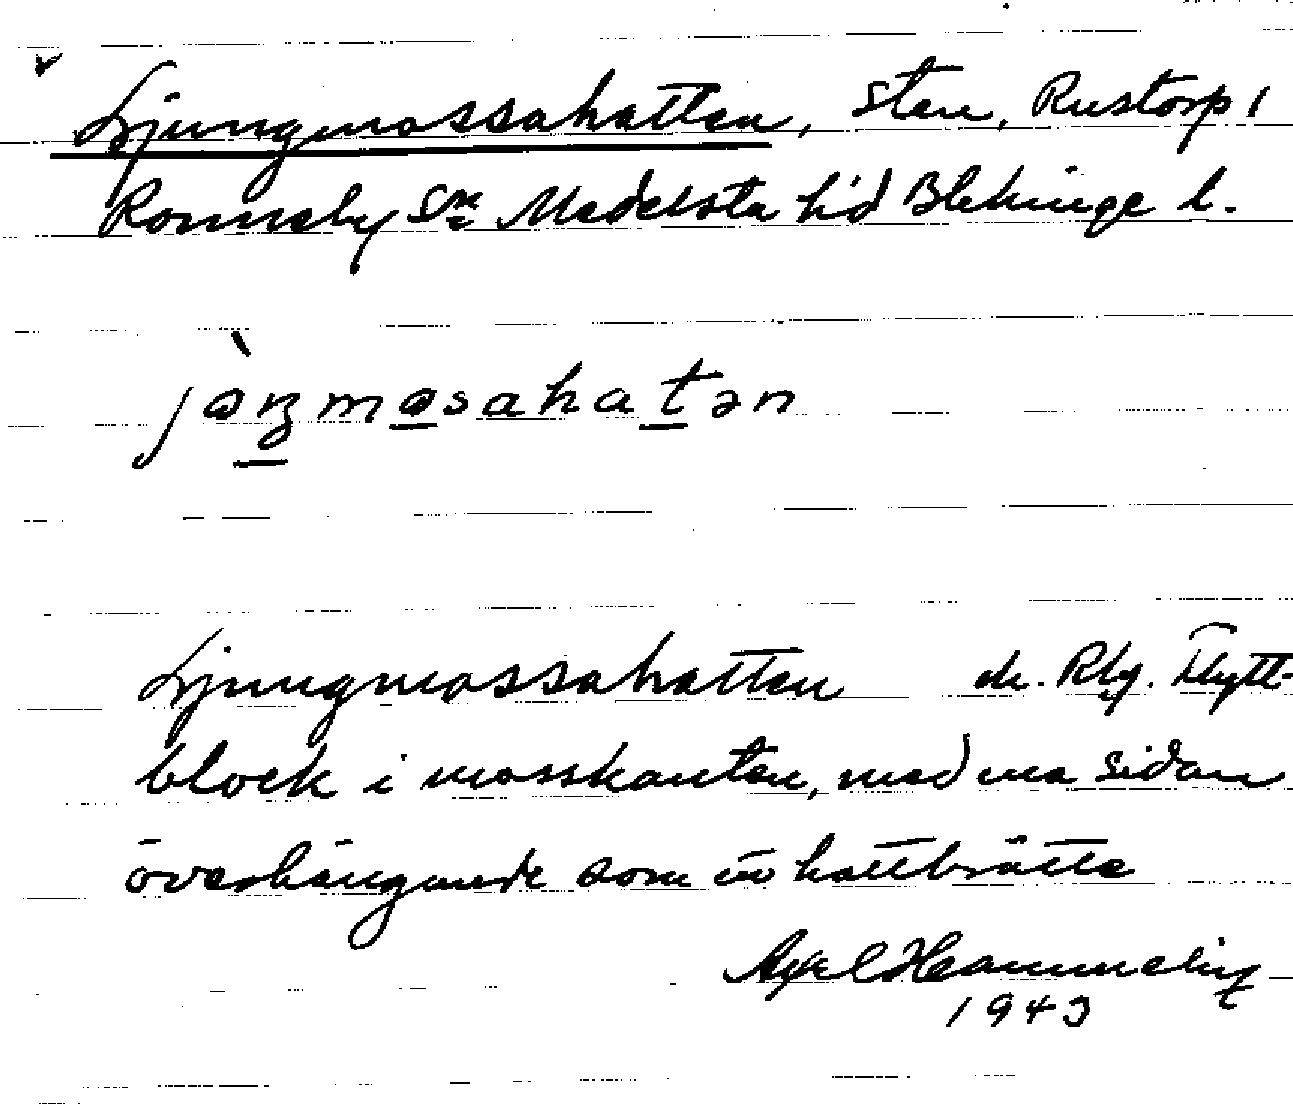 Ljungmossahatten, sten, Rustorp 1
Ronneby sn Medelsta hd Blekinge l.
jøŋmosahatən
Ljungmossahatten de. Rbg. Flytt-
block i mosskanten, med ena sidan
överhängande som en hattbrätte
Axel
1943